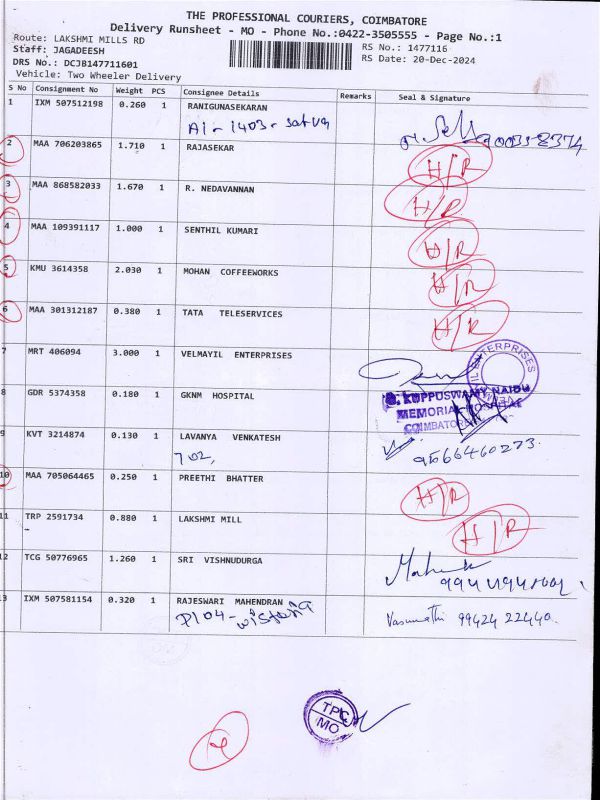 THE PROFESSIONAL COURIERS, COIMBATORE
Delivery Runsheet - MO - Phone No.:0422-3505555 - Page No.:1
Route: LAKSHMI MILLS RD
RS No.: 1477116
Staff: JAGADEESH
RS Date: 20-Dec-2024
DRS No.: DCJB147711601
Vehicle: Two Wheeler Delivery
S No Consignment No Weight PCS Consignee Details Remarks Seal & Signature
1 IXM 507512198 0.260 1 RANIGUNASEKARAN
A1-1403-
2 MAA 706203865 1.710 1 RAJASEKAR H/R
3 MAA 868582033 1.670 1 R. NEDAVANNAN H/R
4 MAA 109391117 1.000 1 SENTHIL KUMARI H/R
5 KMU 3614358 2.030 1 MOHAN COFFEEWORKS H/R
6 MAA 301312187 0.380 1 TATA TELESERVICES H/R
7 MRT 406094 3.000 1 VELMAYIL ENTERPRISES
ENTERPRISES
8 GDR 5374358 0.180 1 GKNM HOSPITAL
KUPPUSWAMY NAIDU
MEMORIAL HOSPITAL
COIMBATORE
9 KVT 3214874 0.130 1 LAVANYA VENKATESH
702, 9566460273.
10 MAA 705064465 0.250 1 PREETHI BHATTER H/R
11 TRP 2591734 0.880 1 LAKSHMI MILL H/R
12 TCG 50776965 1.260 1 SRI VISHNUDURGA
13 IXM 507581154 0.320 1 RAJESWARI MAHENDRAN
P104-wisteria Vasumathi 99424 22440.
TPC
MO